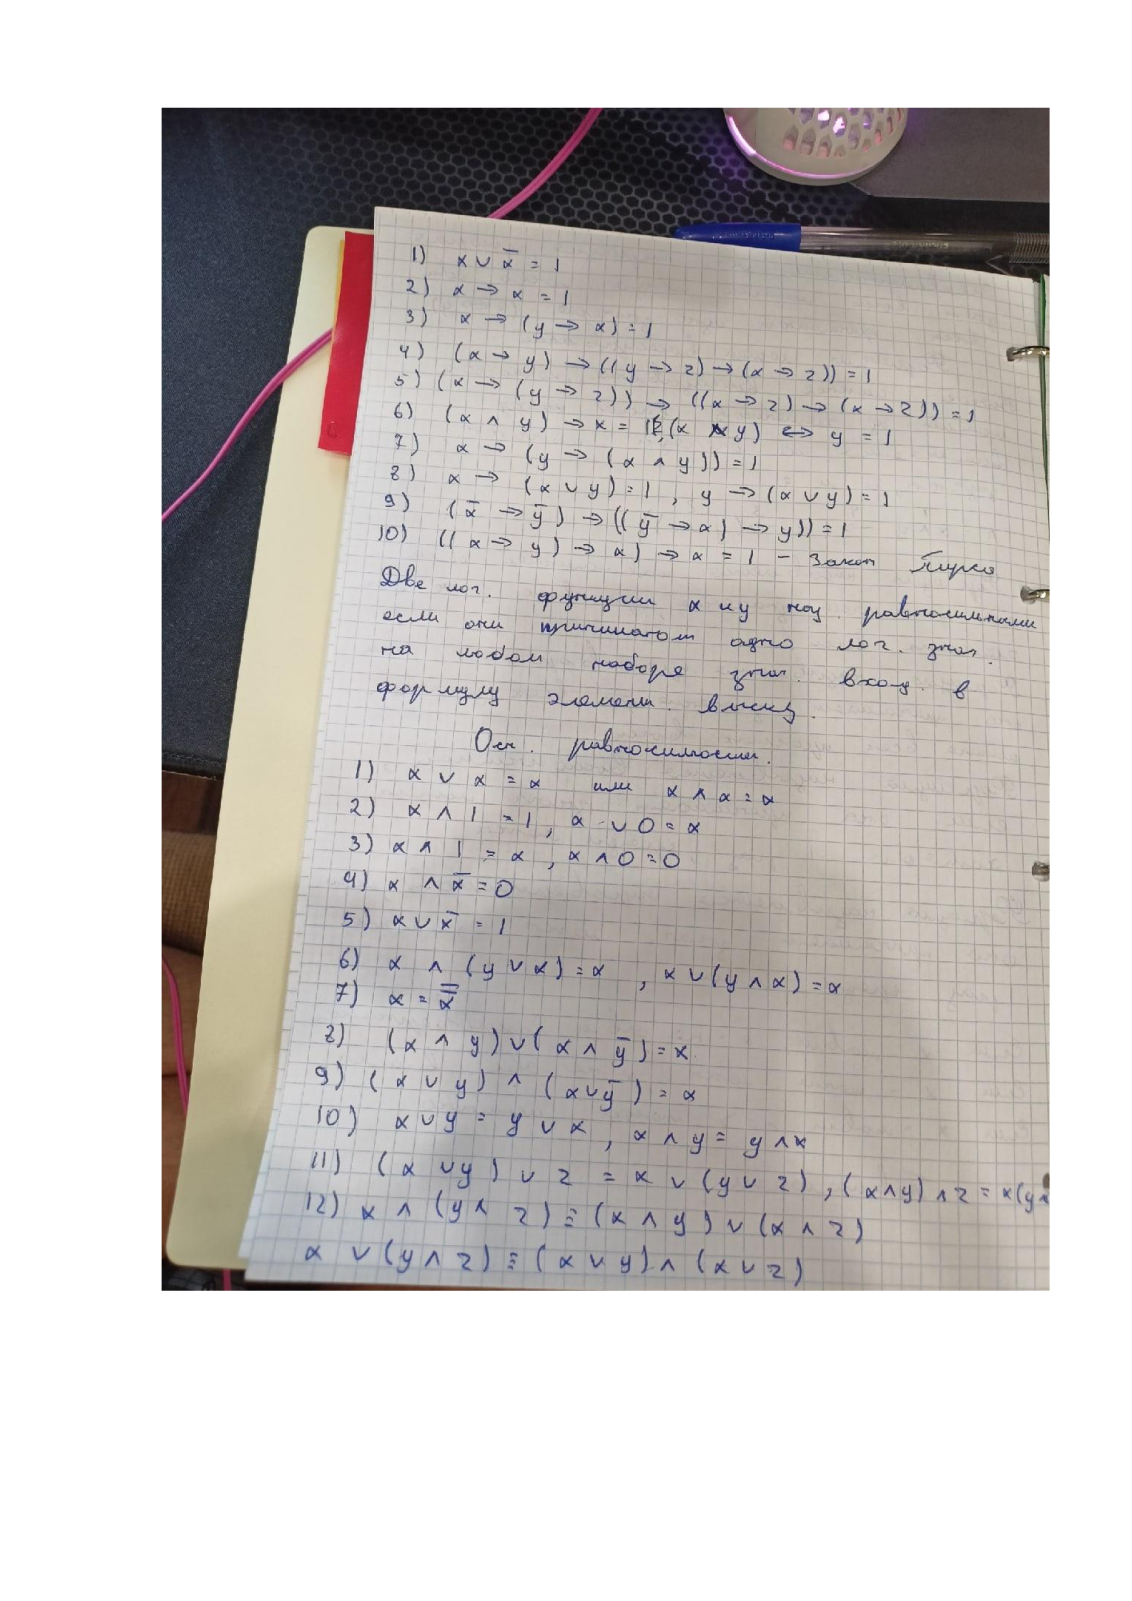 1) x ∪ x̄ = 1
2) x → x = 1
3) x → (y → x) = 1
4) (x → y) → ((y → z) → (x → z)) = 1
5) (x → (y → z)) → ((x → z) → (x → z)) = 1
6) (x ∧ y) → x = 1 (x ∧ y) ↔ y = 1
7) x → (y → (x ∧ y)) = 1
8) x → (x ∪ y) = 1 , y → (x ∪ y) = 1
9) (x̄ → ȳ) → ((ȳ → x) → y)) = 1
10) ((x → y) → x) → x = 1 – Закон Пирса
Две лог. функции x и y наз. равносильными
если они принимают одно лог. знач.
на любом наборе знач. вход. в
формулу элемент. высказ.
Осн. равносильности.
1) x ∨ x = x или x ∧ x = x
2) x ∧ 1 = 1 , x ∪ 0 = x
3) x ∧ 1 = x , x ∧ 0 = 0
4) x ∧ x̄ = 0
5) x ∪ x̄ = 1
6) x ∧ (y ∪ x) = x , x ∪ (y ∧ x) = x
7) x = x̿
8) (x ∧ y) ∪ (x ∧ ȳ) = x
9) (x ∪ y) ∧ (x ∪ ȳ) = x
10) x ∪ y = y ∪ x , x ∧ y = y ∧ x
11) (x ∪ y) ∪ z = x ∪ (y ∪ z) , (x ∧ y) ∧ z = x (y ∧
12) x ∧ (y ∧ z) ≡ (x ∧ y) ∪ (x ∧ z)
x ∪ (y ∧ z) ≡ (x ∪ y) ∧ (x ∪ z)